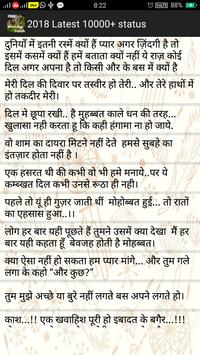 8:22
2018 Latest 10000+ status
दुनियाँ में इतनी रस्में क्यों हैं प्यार अगर ज़िंदगी है तो
इसमें कसमें क्यों हैं हमें बताता क्यों नहीं ये राज़ कोई
दिल अगर अपना है तो किसी और के बस में क्यों है
मेरी दिल की दिवार पर तस्वीर हो तेरी.. और तेरे हाथों में
हो तकदीर मेरी।
दिल मे छूपा रखी.. है मुहबब्त काले धन की तरह...
खुलासा नही करता हू कि कही हंगामा ना हो जाये.
वो शाम का दायरा मिटने नहीं देते हमसे सुबहे का
इंतज़ार होता नहीं है ।
एक हसरत थी की कभी वो भी हमे मनाये..पर ये
कम्ब्खत दिल कभी उनसे रूठा ही नही।
पहले तो यूं ही गुज़र जाती थीं मोहोब्बत हुई... तो रातों
का एहसास हुआ..।।
लोग हर बार यही पूछते हैं तुमने उसमें क्या देखा मैं हर
बार यही कहता हूँ बेवजह होती है मोहब्बत।
क्या ऐसा नहीं हो सकता हम प्यार मांगे... और तुम गले
लगा के कहो "और कुछ?"
तुम मुझे अच्छे या बुरे नहीं लगते बस अपने लगते हो।
काश...!! एक ख्वाहिश पूरी हो इबादत के बगैर...!!!